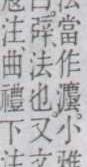 法當作灋小雅
辟法也又
注曲禮下注